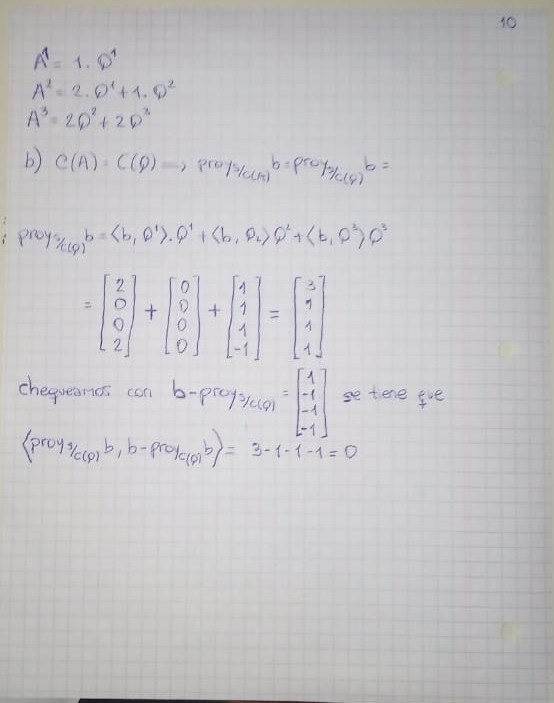 10
A¹ = 1. Q¹
A² = 2. Q¹ + 1. Q²
A³ = 2Q² + 2Q³
b) C(A) = C(Q) → proy s/C(A) b = proy s/C(Q) b =
proy s/C(Q) b = ⟨b, Q¹⟩. Q¹ + ⟨b, Q₂⟩ Q² + ⟨b, Q³⟩ Q³
= [2 0 0 2] + [0 0 0 0] + [1 1 1 -1] = [3 1 1 1]
chequeamos con b - proy s/C(Q) = [1 -1 -1 -1] se tiene que
⟨proy s/C(Q) b, b - proy C(Q) b⟩ = 3-1-1-1 = 0